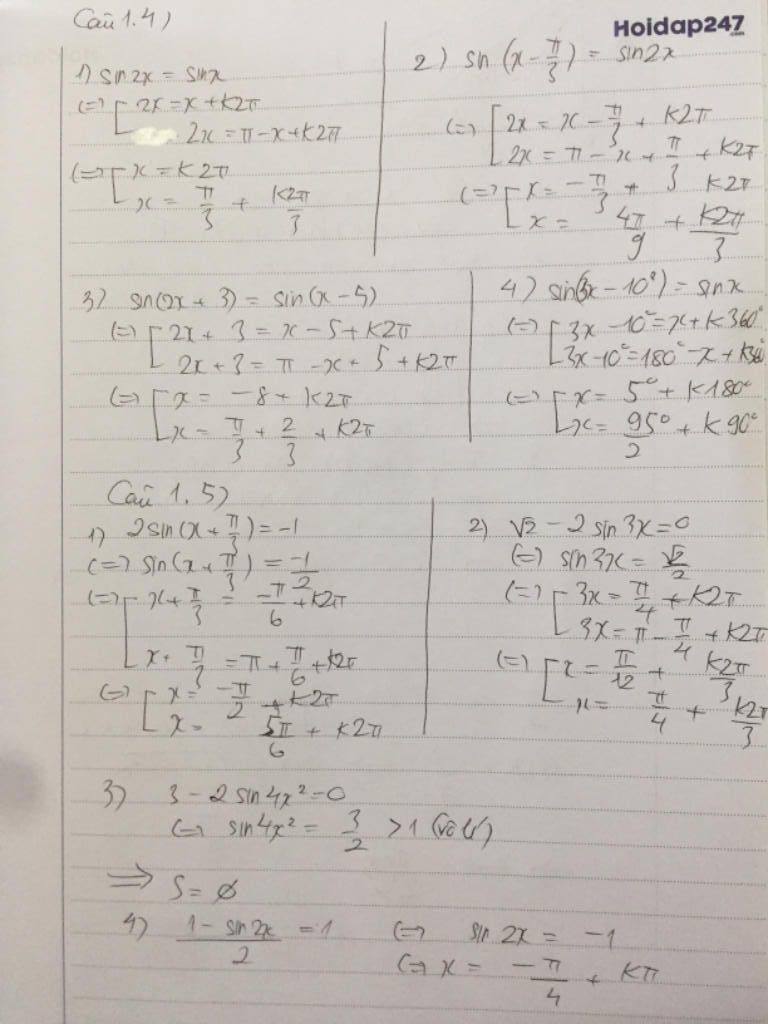 Câu 1.4)
Hoidap247
.com
1) sin2x = sinx
(=) [ 2x = x + k2π
2x = π - x + k2π
(=) [ x = k2π
x = π/3 + k2π/3
2) sin (x - π/3) = sin2x
(=) [ 2x = x - π/3 + k2π
2x = π - x + π/3 + k2π
(=) [ x = -π/3 + k2π
x = 4π/9 + k2π/3
3) sin(2x + 3) = sin(x - 5)
(=) [ 2x + 3 = x - 5 + k2π
2x + 3 = π - x + 5 + k2π
(=) [ x = -8 + k2π
x = π/3 + 2/3 + k2π
4) sin(3x - 10°) = sinx
(=) [ 3x - 10° = x + k360°
3x - 10° = 180° - x + k360°
(=) [ x = 5° + k180°
x = 95°/2 + k90°
Câu 1.5)
1) 2sin(x + π/3) = -1
(=) sin(x + π/3) = -1/2
(=) [ x + π/3 = -π/6 + k2π
x + π/3 = π + π/6 + k2π
(=) [ x = -π/2 + k2π
x = 5π/6 + k2π
2) √2 - 2 sin3x = 0
(=) sin3x = √2/2
(=) [ 3x = π/4 + k2π
3x = π - π/4 + k2π
(=) [ x = π/12 + k2π/3
x = π/4 + k2π/3
3) 3 - 2 sin4x² = 0
(=) sin4x² = 3/2 > 1 (vô lí)
=> S = ∅
4) (1 - sin2x)/2 = 1 (=) sin 2x = -1
(=) x = -π/4 + kπ